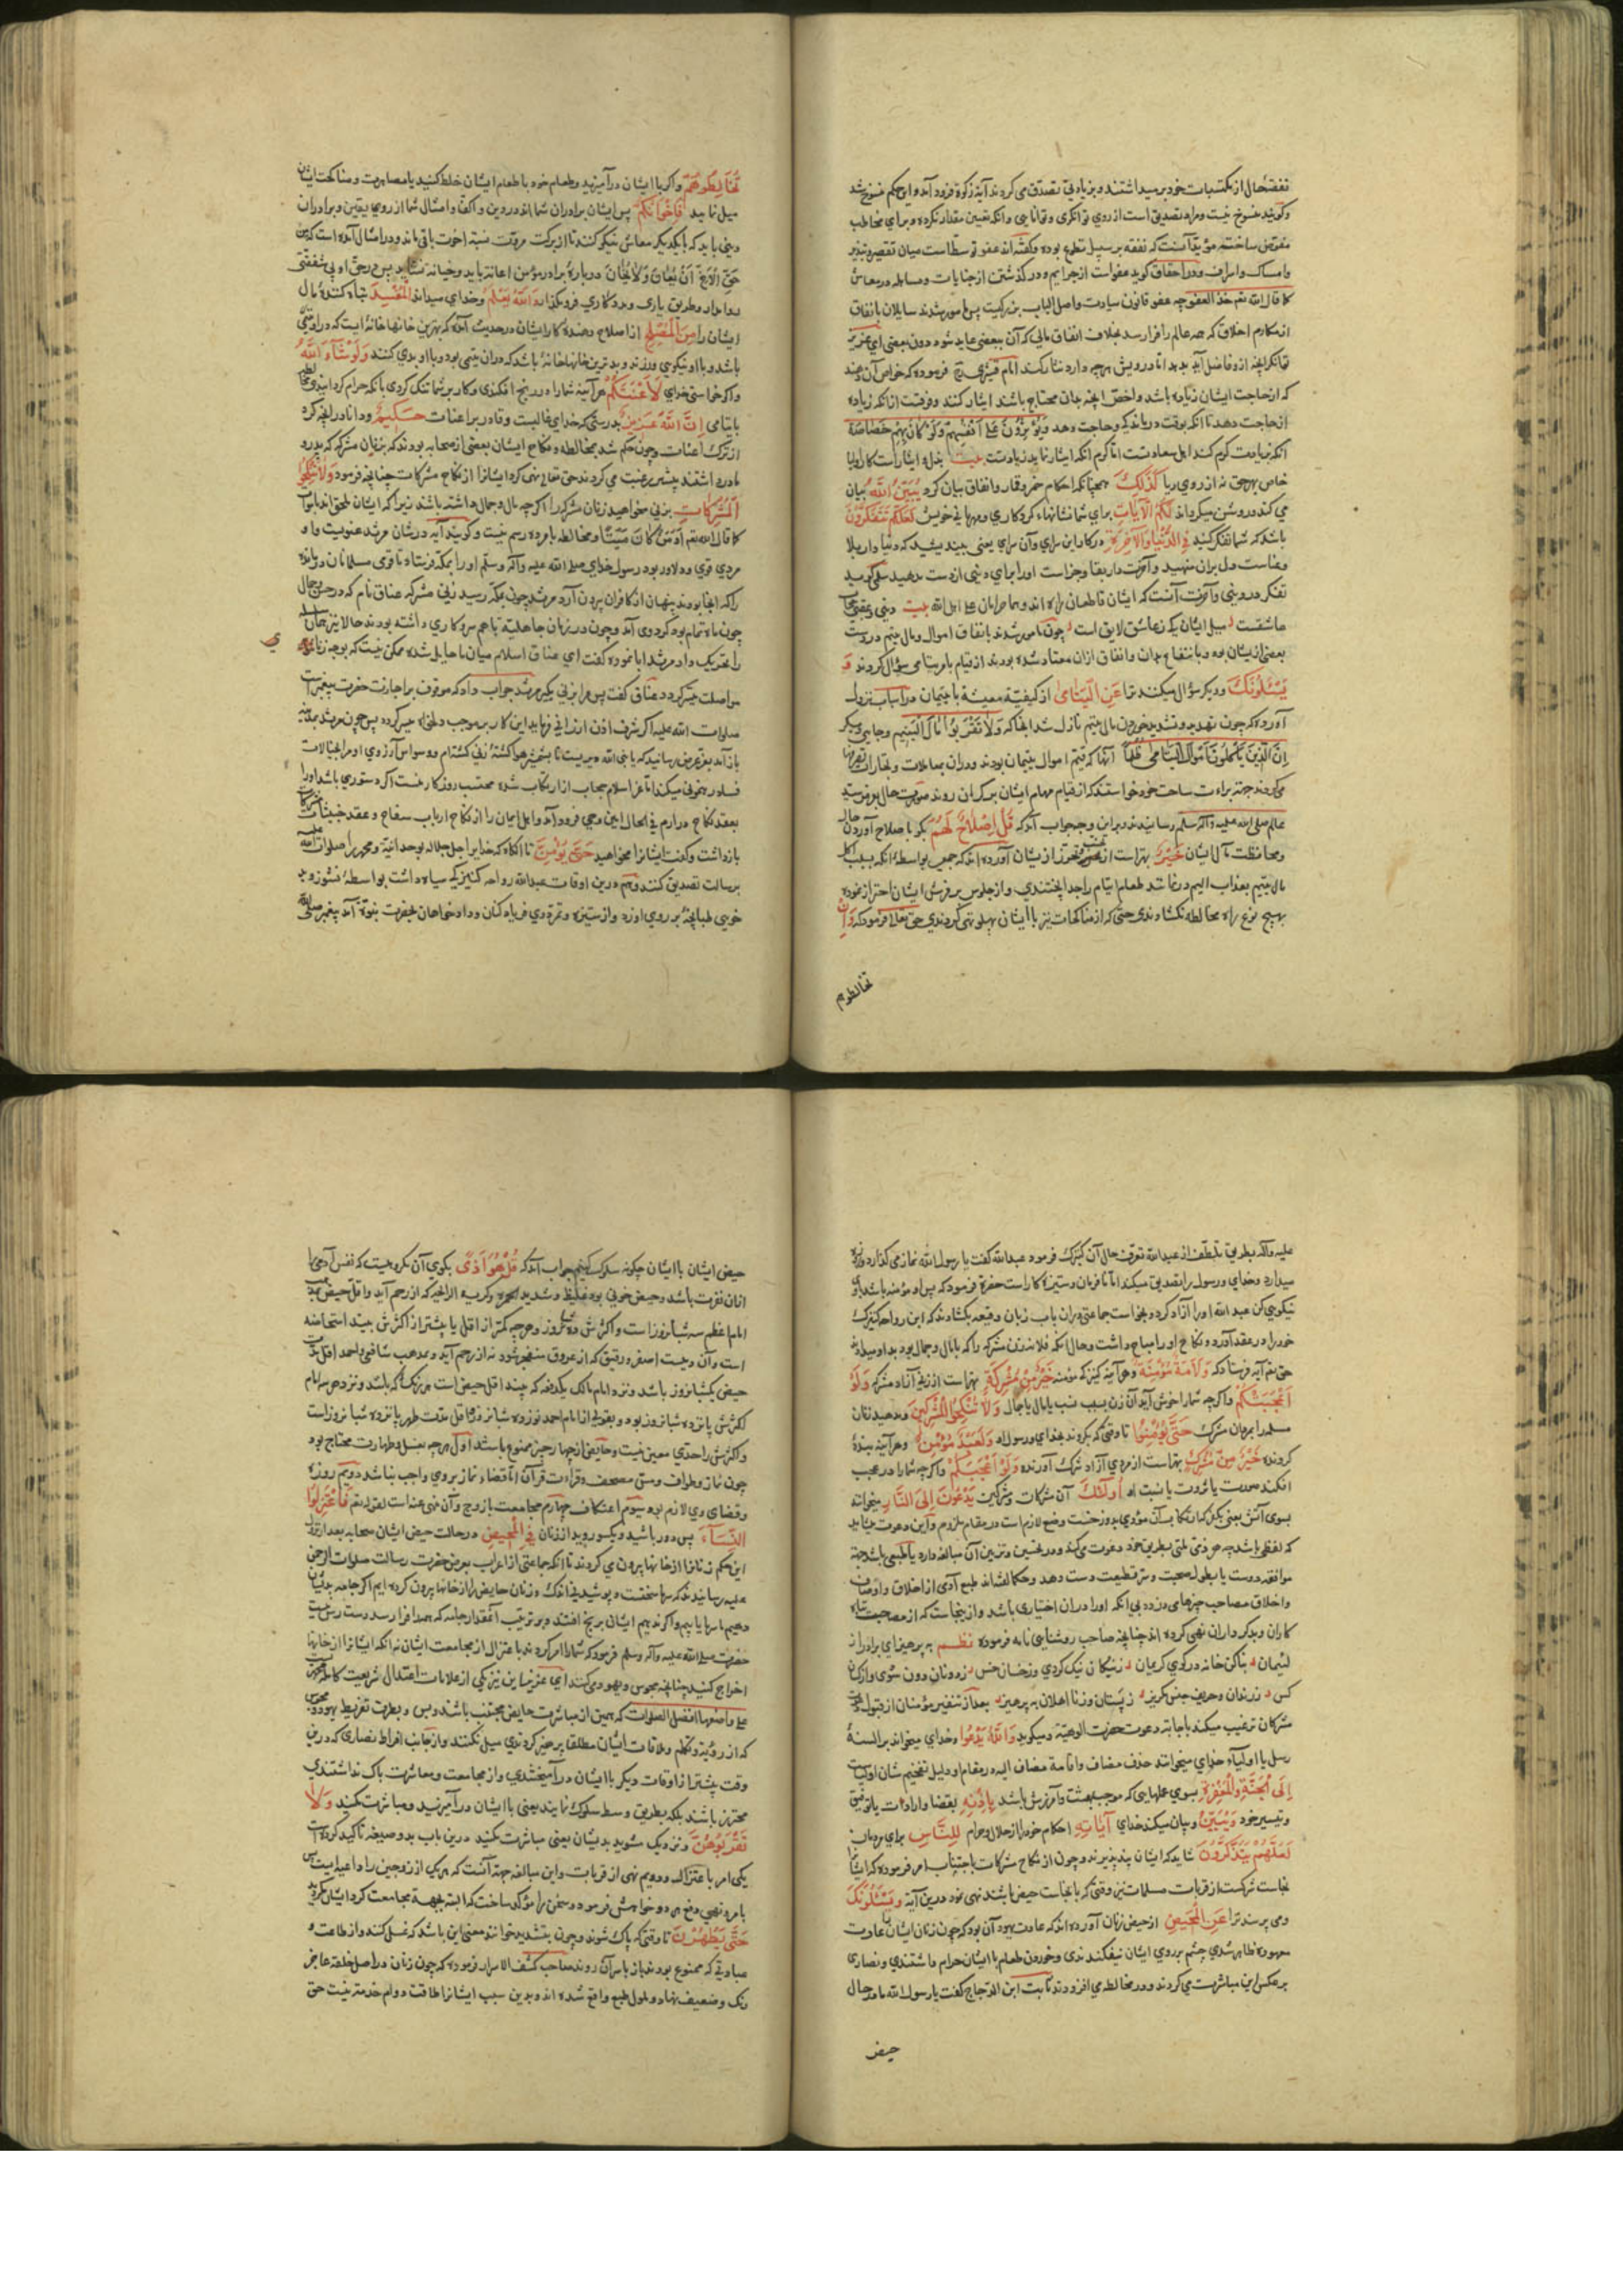 نفقهٔ حال از مکتسبات خود برمیداشتند و بزیادتی تصدق می کردند آیهٔ زکوة فرود آمد و این حکم منسوخ شد
و گویند منسوخ نیست و مراد تصدیق است از روی توانگری و توانایی
مفوض ساخته مؤید آنست که نفقه بر سبیل تطوع بوده و گفته اند عفو توسط است میان تقصیر و تبذیر
و امساک و اسراف و در احقاف گوید عفو است از جرایم و در گذشتن از جنایات و مساهله در معاش
کما قال الله تعم خذ العفو چه عفو قانون سیادت
از مکارم اخلاق که همه عالم را فرا رسد بخلاف انفاق مالی که آن ببعضی عاید شود دون بعضی ای عزیز
توانگر آنچه ازو فاضل آید بدهد اما درویش هرچه دارد نثار کند امام قشیری رح فرموده که خواص آن دهند
که از حاجت ایشان زیاده باشد و اخص آنچه بدان محتاج باشند ایثار کنند و فرقست از آنکه زیاده
از حاجت دهد تا آنکه بوقت درماندگی و حاجت دهد وَيُؤْثِرُونَ عَلَىٰ أَنْفُسِهِمْ وَلَوْ كَانَ بِهِمْ خَصَاصَةٌ
آنکه زیادت کرم کند اهل سعادتست اما کرم آنکه ایثار نماید زیادتست بیت بذل و ایثار است کار اولیا
خاص بهر حق نه از روی ریا كَذَٰلِكَ همچنانکه احکام خمر و قمار و انفاق بیان کرد يُبَيِّنُ اللَّهُ بیان
می کند و روشن میگرداند لَكُمُ الْآيَاتِ برای شما نشانهاء کردگاری و مهربانی خویش لَعَلَّكُمْ تَتَفَكَّرُونَ
باشد که شما تفکر کنید فِي الدُّنْيَا وَالْآخِرَةِ در کار این سرای و آن سرای یعنی ببینید که دنیا دار بلا
و فناست دل بران منهید و آخرت دار بقا و جزاست او را برای دنیی از دست بدهید سلمی گوید
تفکر در دنیی و آخرت آنست که ایشان قاطعان راه اند و حرامان علی اهل الله بیت دنیی و عقبی حجاب
عاشقست میل ایشان یک ز عاشق لایق است چون مامور شدند بانفاق اموال و مال یتیم در دست
بعضی از یشان بود و بانتفاع بدان و انفاق ازان معتاد شده بودند از قیام بامر یتامی سؤال کردند قوله
يَسْئَلُونَكَ و دیگر سؤال میکنند ترا عَنِ الْيَتَامَىٰ از کیفیة معیشة با یتیمان در اسباب نزول
آورده که چون تهدید و تشدید خوردن مال یتیم نازل شد آنجا که وَلَا تَقْرَبُوا مَالَ الْيَتِيمِ و جایی دیگر
إِنَّ الَّذِينَ يَأْكُلُونَ أَمْوَالَ الْيَتَامَىٰ ظُلْمًا آنها که قیم اموال یتیمان بودند و دران بمعاملات و تجارات تصرفها
می کردند جهة براءت ساحت خود خواستند که از قیام مهام ایشان بر کران روند صورت حال بعرض سید
عالم صلی الله علیه و آله و سلم رسانیدند و برین وجه جواب آمد که قُلْ إِصْلَاحٌ لَهُمْ بگو باصلاح آوردن حال
و محافظت مال ایشان خَيْرٌ بهتر است از تجنب و تحرز از یشان آورده اند که جمعی بواسطهٔ آنکه بسبب اکل
مال یتیم بعذاب الیم در نمانند طعام ایتام را جدا پختندی و از جلوس بر فرش ایشان احتراز نموده
بهیچ نوع راه مخالطه نگشادندی حتی که از مناکحات نیز با ایشان پهلو تهی کردندی حق تعالی فرمود که وَإِنْ
تخالطوهم
تُخَالِطُوهُمْ و اگر با ایشان در آمیزید و طعام خود با طعام ایشان خلط کنید یا مصاهرت و مناکحت ایشان
میل نمایید فَإِخْوَانُكُمْ پس ایشان برادران شما اند در دین و اکفا و امثال شما از روی یقین و برادران
دینی باید که بایکدیگر معاش نیکو کنند تا از برکت مروت نسبة اخوت باقی ماند و در امثال آمده است که من
حَقِّ الْأَخِ أَنْ يُعَانَ وَلَا يُخَانَ دربارهٔ برادر مؤمن اعانة باید و خیانة نشاید پس در حق او بی شفقتی
روا مدار و طریق یاری و مددکاری فرو مگذار وَاللَّهُ يَعْلَمُ و خدای میداند الْمُفْسِدَ تباه کنندهٔ مال
ایشان را مِنَ الْمُصْلِحِ از اصلاح دهندهٔ کار ایشان در حدیث آمده که بهترین خانها خانهٔ ایست که در او یتیمی
باشد و با او نیکویی ورزند و بدترین خانها خانهٔ باشد که دران یتیمی بود و با او بدی کنند وَلَوْ شَاءَ اللَّهُ
و اگر خواستی خدای لَأَعْنَتَكُمْ هر آینه شما را در رنج افکندی و کار بر شما تنک کردی بانکه حرام کردانیدی
با یتامی إِنَّ اللَّهَ عَزِيزٌ بدرستی که خدای غالبست و قادر بر اعنات حَكِيمٌ و دانا در آنچه کرد
از ترک اعنات و چون حکم شد بمخالطه و نکاح ایشان بعضی از صحابه بودند که بزنان مشرکه که پدر و
مادر داشتند پیشتر رغبت می کردند حق تعالی نهی کرد ایشانرا از نکاح مشرکات چنانچه فرمود وَلَا تَنْكِحُوا
الْمُشْرِكَاتِ بزنی مخواهید زنان مشرکه را اگر چه مال و جمال داشته باشد زیرا که ایشان ملحق اند باموات
کما قال الله تعم أَوَمَنْ كَانَ مَيْتًا و مخالطه بامرده رسم نیست و گویند آیه در شان مرثد غنویست و او
مردی قوی و دلاور بود رسول خدای صلی الله علیه و آله و سلم او را بمکه فرستاد تا قومی مسلمانان درمانده
را که آنجا بودند پنهان از کافران بیرون آرد مرثد چون بمکه رسید زنی مشرکه عناق نام که در حسن و جمال
چون ماه تمام بود کرد وی آمد و چون در زمان جاهلیة باهم سروکاری داشته بودند حالا نیز همان
را تحریک داد مرثد ابا نمود گفت ای عناق اسلام میان ما حایل شده ممکن نیست که بوجه زنا
مواصلت میسر کردد عناق گفت پس مرا بزنی بکیر مرثد جواب داد که موقوف بر اجازت حضرت پیغمبر است
صلوات الله علیه اکر شرف اذن ارزانی فرماید این کار بر موجب دلخواه میسر کردد پس چون مرثد بمدینه
باز آمد بعرض رسانید که یا نبی الله
بعقد نکاح در آرم فی الحال این وحی فرود آمد و اهل ایمان را از نکاح ارباب سفاح و عقد خبیثات مشرکات
باز داشت و گفت ایشانرا مخواهید حَتَّىٰ يُؤْمِنَّ تا آنکاه که خدایرا جل جلاله بوحدانیة و محمد را صلوات الله علیه
برسالت تصدیق کنند و هم درین اوقات عبدالله رواحه کنیزکی سیاه داشت بواسطهٔ نشوز و بد
خویی طپانچهٔ بر روی او زد و از ستیزه و تمرد وی فریاد کنان و دادخواهان بحضرت نبوة آمد پیغمبر صلی الله
علیه و آله بطریق تلطف از عبدالله تعرف حال آن کنیزک فرمود عبدالله گفت یا رسول الله نماز می گذارد و روزه
میدارد و خدای و رسول را تصدیق میکند اما نافرمان و ستیزه کار است حضرة فرمود که پس او مؤمنه باشد با او
نیکویی کن عبدالله او را آزاد کرد و بخواست جماعتی دران باب زبان وقیعه بگشادند که ابن رواحه کنیزک
خود را در عقد آورد و نکاح او را مباح داشت و حال آنکه فلانه زن مشرکه را که با مال و جمال بود بدو میدادند
حق تعم آیه فرستاد که وَلَأَمَةٌ مُؤْمِنَةٌ و هر آینه کنیزک مؤمنه خَيْرٌ مِنْ مُشْرِكَةٍ بهتر است از زنی آزاد مشرکه وَلَوْ
أَعْجَبَتْكُمْ و اگر چه شما را خوش آید آن زن بسبب نسب یا مال یا جمال وَلَا تُنْكِحُوا الْمُشْرِكِينَ و مدهید زنان
مسلمه را بمردان مشرک حَتَّىٰ يُؤْمِنُوا تا وقتی که بگروند بخدای و رسول او وَلَعَبْدٌ مُؤْمِنٌ و هر آینه بندهٔ
گرونده خَيْرٌ مِنْ مُشْرِكٍ بهتر است از مردی آزاد شرک آورنده وَلَوْ أَعْجَبَكُمْ و اگر چه شما را در عجب
افکند صورت یا ثروت یا نسب او أُولَٰئِكَ آن مشرکات و مشرکین يَدْعُونَ إِلَى النَّارِ میخوانند
بسوی آتش یعنی
که لفظی باشد چه هر ذی ملتی بطریق خود دعوت می کند و در تحسین و تزیین آن مبالغه دارد یا طبعی باشد چه
موافقه دوست یا بطول صحبت و سر قطیعت دست دهد و حکما گفته اند طبع آدمی از اخلاق و اوصاف
و اخلاق مصاحب چیزها می دزدد بی آنکه او را دران اختیاری باشد و از ینجاست که از مصاحبت تباه
کاران و بدکرداران نهی کرده اند چنانچه صاحب روشنایی نامه فرموده نظم به پرهیز ای برادر از
لئیمان بنا کن خانه در کوی کریمان
کس
مشرکان ترغیب میکند باجابة دعوت حضرت الوهیة و میگوید وَاللَّهُ يَدْعُوا و خدای میخواند بر السنهٔ
رسل یا اولیاء خدای میخوانند حذف مضاف و اقامة مضاف الیه در مقام او دلیل تفخیم شان اولیاست
إِلَى الْجَنَّةِ وَالْمَغْفِرَةِ بسوی عملهایی که موجب بهشت و آمرزش باشد بِإِذْنِهِ بقضا و ارادت یا توفیق
و تیسیر خود وَيُبَيِّنُ و بیان میکند خدای آيَاتِهِ احکام خود را از حلال و حرام لِلنَّاسِ برای مردمان
لَعَلَّهُمْ يَتَذَكَّرُونَ شاید که ایشان پند پذیرند و چون از نکاح مشرکات باجتناب امر فرمود
نجاست شرکست از قربات مسلمات نیز وقتی که با نجاست حیض باشند نهی نمود درین آیة وَيَسْئَلُونَكَ
و می پرسند ترا عَنِ الْمَحِيضِ از حیض زنان آورده اند که عادت یهود آن بود که چون زنان ایشان را عادت
معهوده ظاهر شدی چشم بر روی ایشان نیفکندندی و خوردن طعام با ایشان حرام داشتندی و نصاری
بر عکس این مباشرت می کردند و در مخالطه می افزودند ثابت ابن الدحداح گفت یا رسول الله ما در حال
حیض
حیض ایشان با ایشان چگونه سلوک کنیم جواب آمد که قُلْ هُوَ أَذًى بگوی آن مکروهیست که نفس آدمی را
ازان نفرت باشد و حیض خونی بود غلیظ و شدید الحمره و کریه الرائحه که از رحم آید و اقل حیض نزد
امام اعظم سه شبانروز است و اکثرش ده روز و هرچه کمتر از اقل یا بیشتر از اکثرش بیند استحاضه
است و آن دمیست اصفر و رقیق که از عروق منفجر شود نه از رحم آید و بمذهب شافعی و احمد اقل مدت
حیض یکشبانروز باشد و نزد امام مالک یکدفعه که بیند اقل حیض است
اکثرش پانزده شبانروز بود و بقولی از امام احمد نوزده شبانروز و اقل مدت طهر پانزده شبانروز است
و اکثرش را حدی معین نیست و حایض از چهار چیز ممنوع باشد اول هرچه بغسل و طهارت محتاج بود
چون نماز و طواف و مس مصحف و قراءت قرآن اما قضاء نماز بر وی واجب نباشد دویم روزه
و قضای وی لازم بود سیوم اعتکاف چهارم مجامعت با زوج و آن منهی عنه است لقوله تعم فَاعْتَزِلُوا
النِّسَاءَ پس دور باشید و یکسو روید از زنان فِي الْمَحِيضِ در حالت حیض ایشان صحابه بعد از نزول
این حکم زنانرا از خانها بیرون می کردند تا آنکه جماعتی از اعراب بعرض حضرت رسالت صلوات الرحمن
علیه رسانیدند که سرما سختست و پوشیدنی اندک و زنان حایض را از خانها بیرون کرده ایم اکر جامه بدیشان
دهیم ما سرما یابیم و اکر ندهیم ایشان برنج افتند
حضرت صلی الله علیه و آله و سلم فرمود که شما را امر کردند باعتزال از مجامعت ایشان نه آنکه ایشانرا از خانها
اخراج کنید چنانچه مجوس و یهود می کنند ای عزیز این نیز یکی از علامات اعتدال شریعت کامله محمدیست
علی واضعها افضل الصلوات که همین از مباشرت حایض مجتنب باشند و بس و بطرف تفریط یهود و مجوس
که از رؤیة و تکلم و ملاقات ایشان مطلقا پرهیز کردندی میل نکنند و از جانب افراط نصاری که درین
وقت بیشتر از اوقات دیگر با ایشان در آمیختندی و از مجامعت و معاشرت باک نداشتندی
محترز باشند بلکه بطریق وسط سلوک نمایند یعنی با ایشان در آمیزید و مباشرت مکنید وَلَا
تَقْرَبُوهُنَّ و نزدیک مشوید بدیشان یعنی مباشرت مکنید درین باب بدو صیغه تاکید کرده است
یکی امر باعتزال و دویم نهی از قربات و این مبالغه جهة آنست که هریکی از زوجین را داعیه ایست پس
بامر و نهی دفع هر دو خواهش فرمود و سخن را مؤکد ساخت که البته بجهة مجامعت کرد ایشان مگردید
حَتَّىٰ يَطْهُرْنَ تا وقتی که پاک شوند و چون بتشدید خوانند معنی این باشد که غسل کنند و از طاعت و
عباداتی که ممنوع بودند باز با سر آن روند صاحب کشف الاسرار فرموده که چون زنان در اصل خلقة عاجز
رنک و ضعیف نهاد و ملول طبع واقع شده اند و بدین سبب ایشانرا طاقت دوام خدمة نیست حق